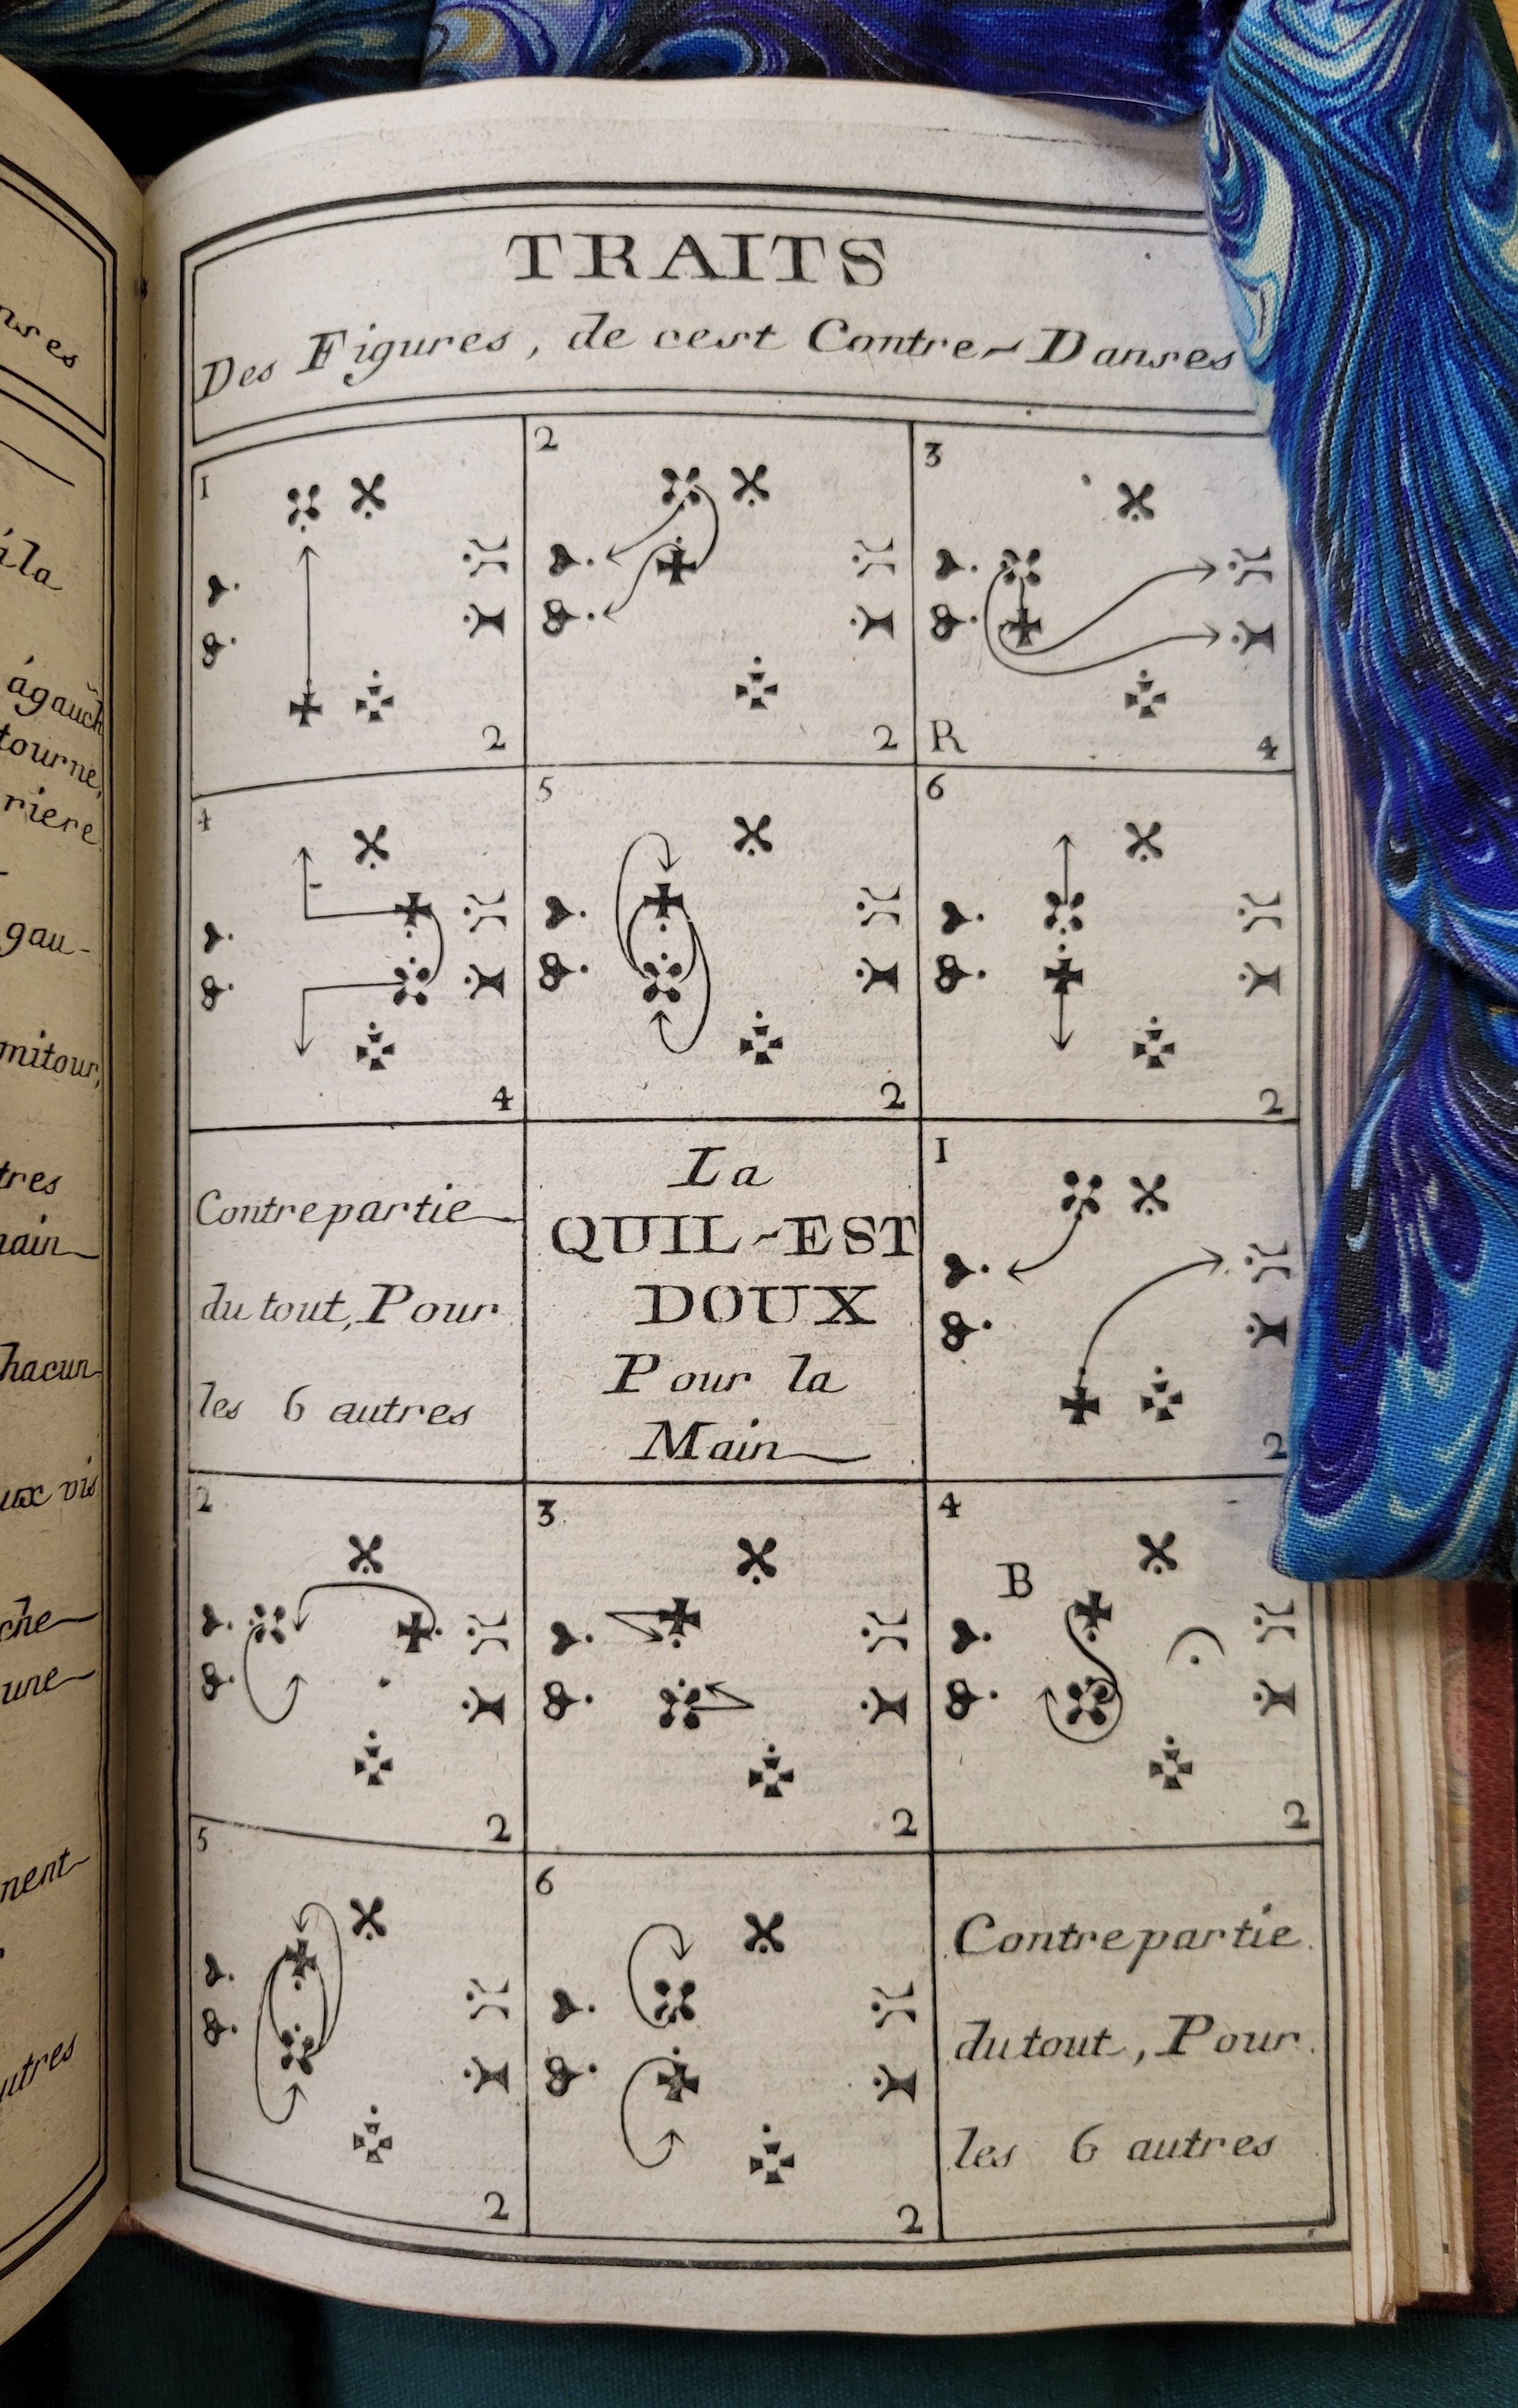 TRAITS
Des Figures, de cest Contre-Danses
1
2
2
2
3
R
4
4
4
5
2
6
2
Contrepartie
du tout, Pour
les 6 autres
La
QUIL-EST
DOUX
Pour la
Main
1
2
2
2
3
2
4
B
2
5
2
6
2
Contrepartie
du tout, Pour
les 6 autres
ágauch
tourne,
riere
gau-
mitour,
tres
hacun
vis
une
nent
utres